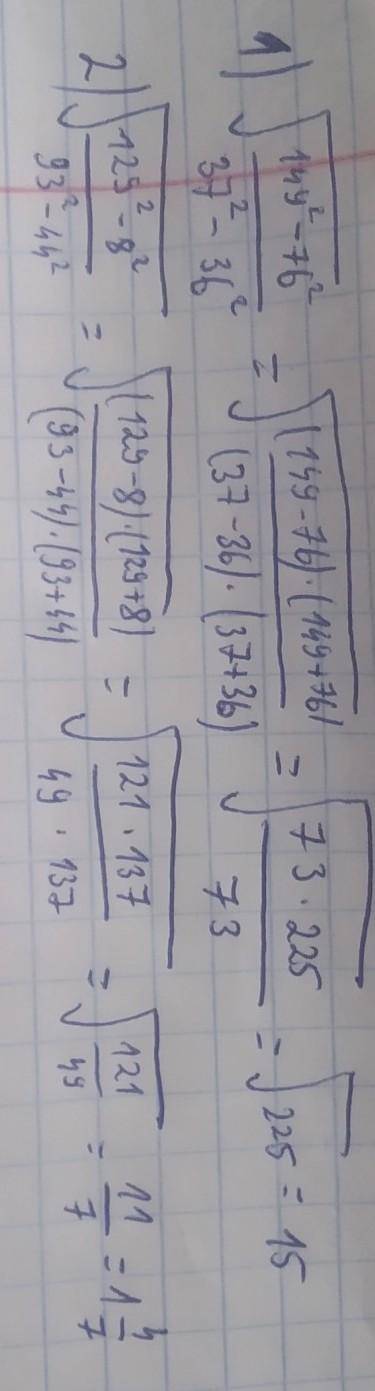 1) √((149² - 76²)/(37² - 36²)) = √(((149-76)·(149+76))/((37-36)·(37+36))) = √((73·225)/73) = √225 = 15
2) √((129² - 8²)/(93² - 44²)) = √(((129-8)·(129+8))/((93-44)·(93+44))) = √((121·137)/(49·137)) = √(121/49) = 11/7 = 1 4/7